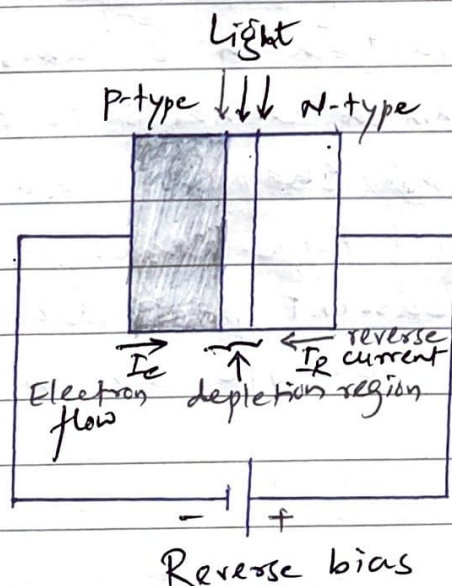 Light
P-type N-type
Ie IR reverse
current
Electron depletion region
flow
- +
Reverse bias